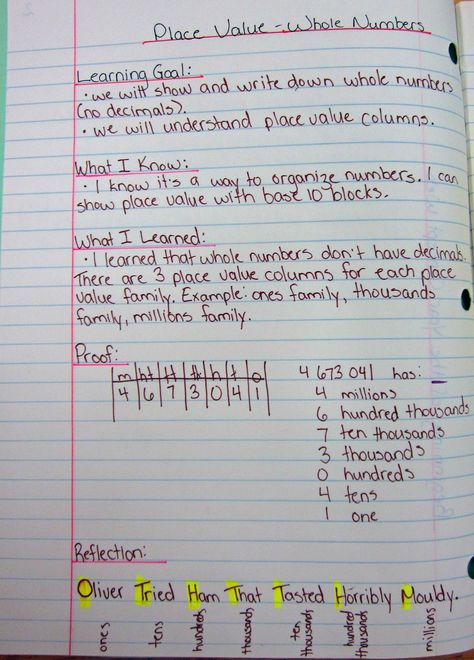 Place Value - Whole Numbers
Learning Goal:
· we will show and write down whole numbers
(no decimals).
· we will understand place value columns.
What I Know:
· I know it's a way to organize numbers. I can
show place value with base 10 blocks.
What I Learned:
· I learned that whole numbers don't have decimals.
There are 3 place value columns for each place
value family. Example: ones family, thousands
family, millions family.
Proof:
m ht tt th h t o
4 6 7 3 0 4 1
4 673 041 has:
4 millions
6 hundred thousands
7 ten thousands
3 thousands
0 hundreds
4 tens
1 one
Reflection:
Oliver Tried Ham That Tasted Horribly Mouldy.
ones
tens
hundreds
thousands
ten thousands
hundred thousands
millions